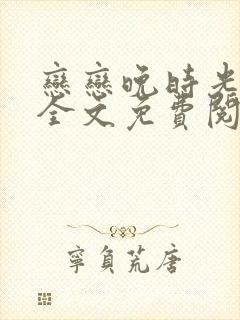 戀戀晚時光
全文免費閱
寧負荒唐